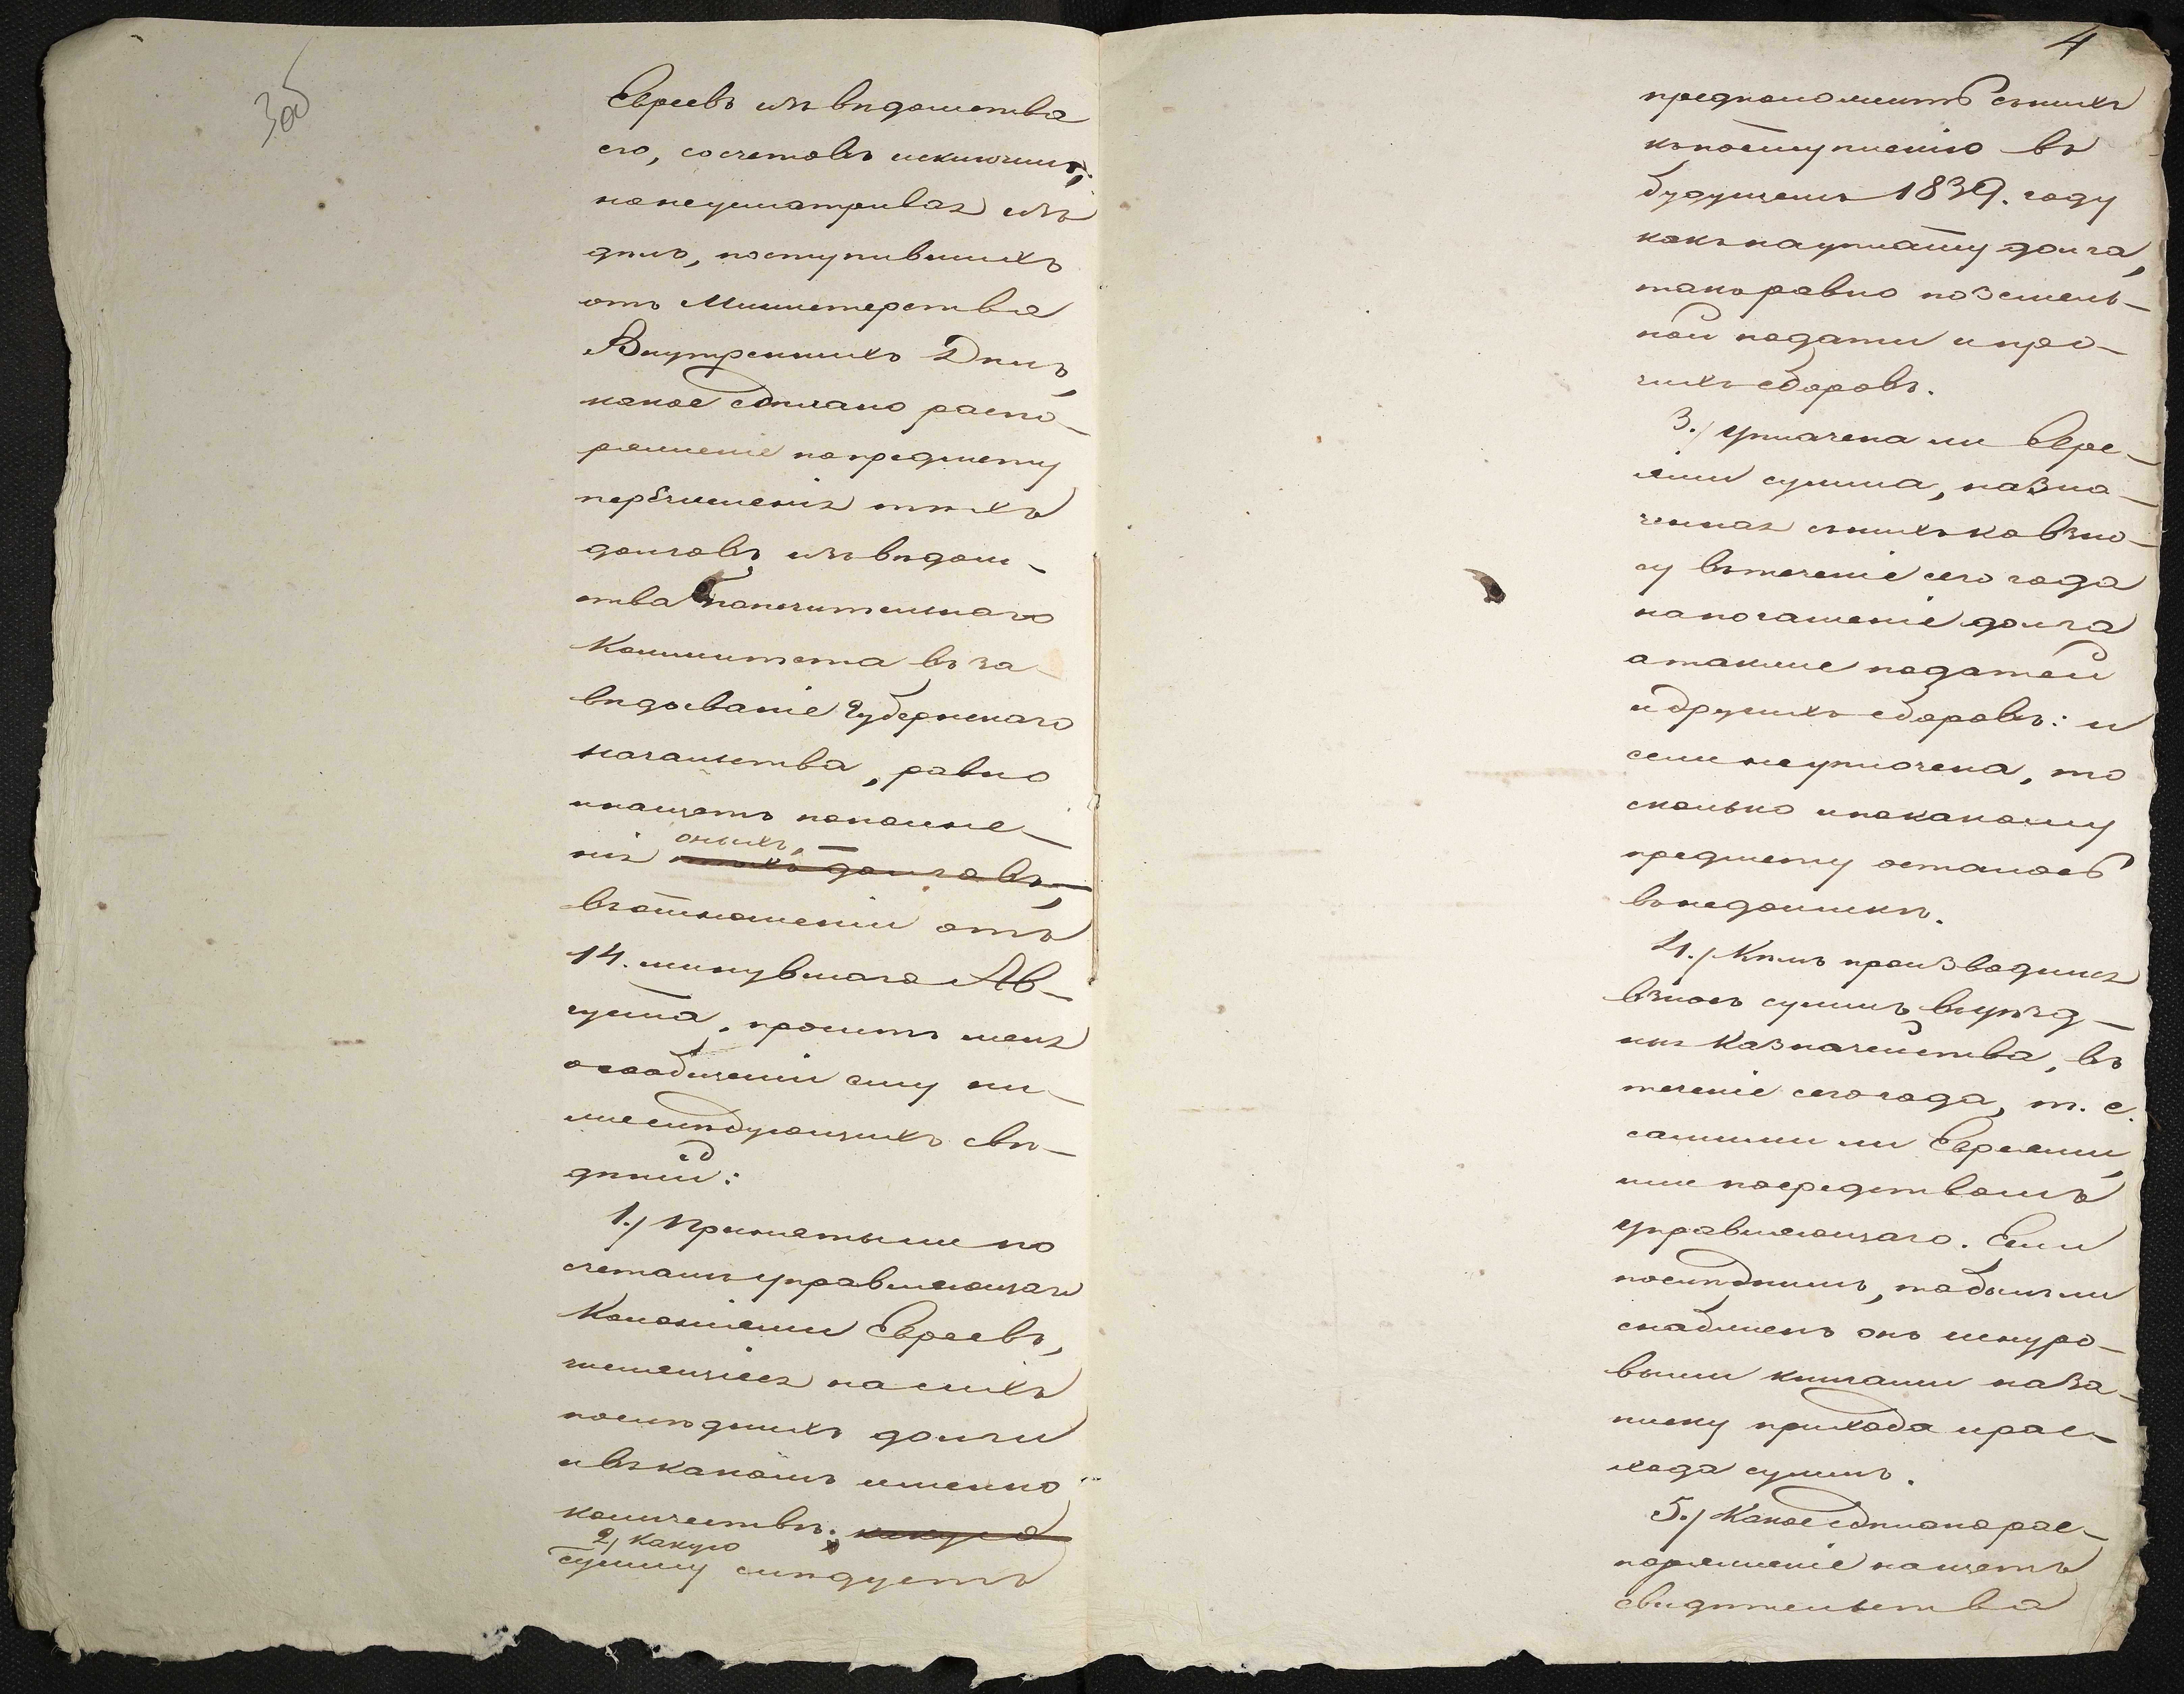 3об
Евреевъ изъ вѣдомства
его, со счетовъ исключить;
но не усматривая изъ
дѣлъ, поступившихъ
отъ Министерства
Внутреннихъ Дѣлъ,
какое сдѣлано распо-
ряженіе по предмету
перечисленія тѣхъ
долговъ изъ вѣдом-
ства Попечительнаго
Коммитета въ за-
вѣдываніе Губернскаго
Начальства, равно
и на щетъ пополне-
оныхъ,
нія тѣхъ долговъ,
въ отношеніи отъ
14. минувшаго Ав-
густа, проситъ меня
о сообщеніи ему ни-
жеслѣдующихъ свѣ-
дѣній:
1./ Приняты ли по
счетамъ управляющаго
Колоніями Евреевъ,
числящіеся на сихъ
послѣднихъ долги
и въ какомъ именно
количествѣ. какую
2/ Какую
сумму слѣдуетъ
4
предположить съ нихъ
къ поступленію въ
будущемъ 1839. году
какъ на уплату долга,
такъ равно поземель-
ной подати и про-
чихъ сборовъ.
3./ Уплачена ли Евре-
ями сумма, назна-
ченная съ нихъ ко взно-
су въ теченіе сего года
на погашеніе долга
а также податей
и другихъ сборовъ: и
если не уплочена, то
сколько и по какому
предмету осталось
въ недоимкѣ.
4./ Кѣмъ производился
взносъ суммъ въ уѣзд-
ныя Казначейства, въ
теченіе сего года, т. е.
самими ли Евреями,
или посредствомъ
управляющаго. Если
послѣднимъ, то былъ ли
снабженъ онъ шнуро-
выми книгами на за-
писку прихода и рас-
хода суммъ.
5./ Какое сдѣлано рас-
поряженіе на щетъ
свидѣтельства